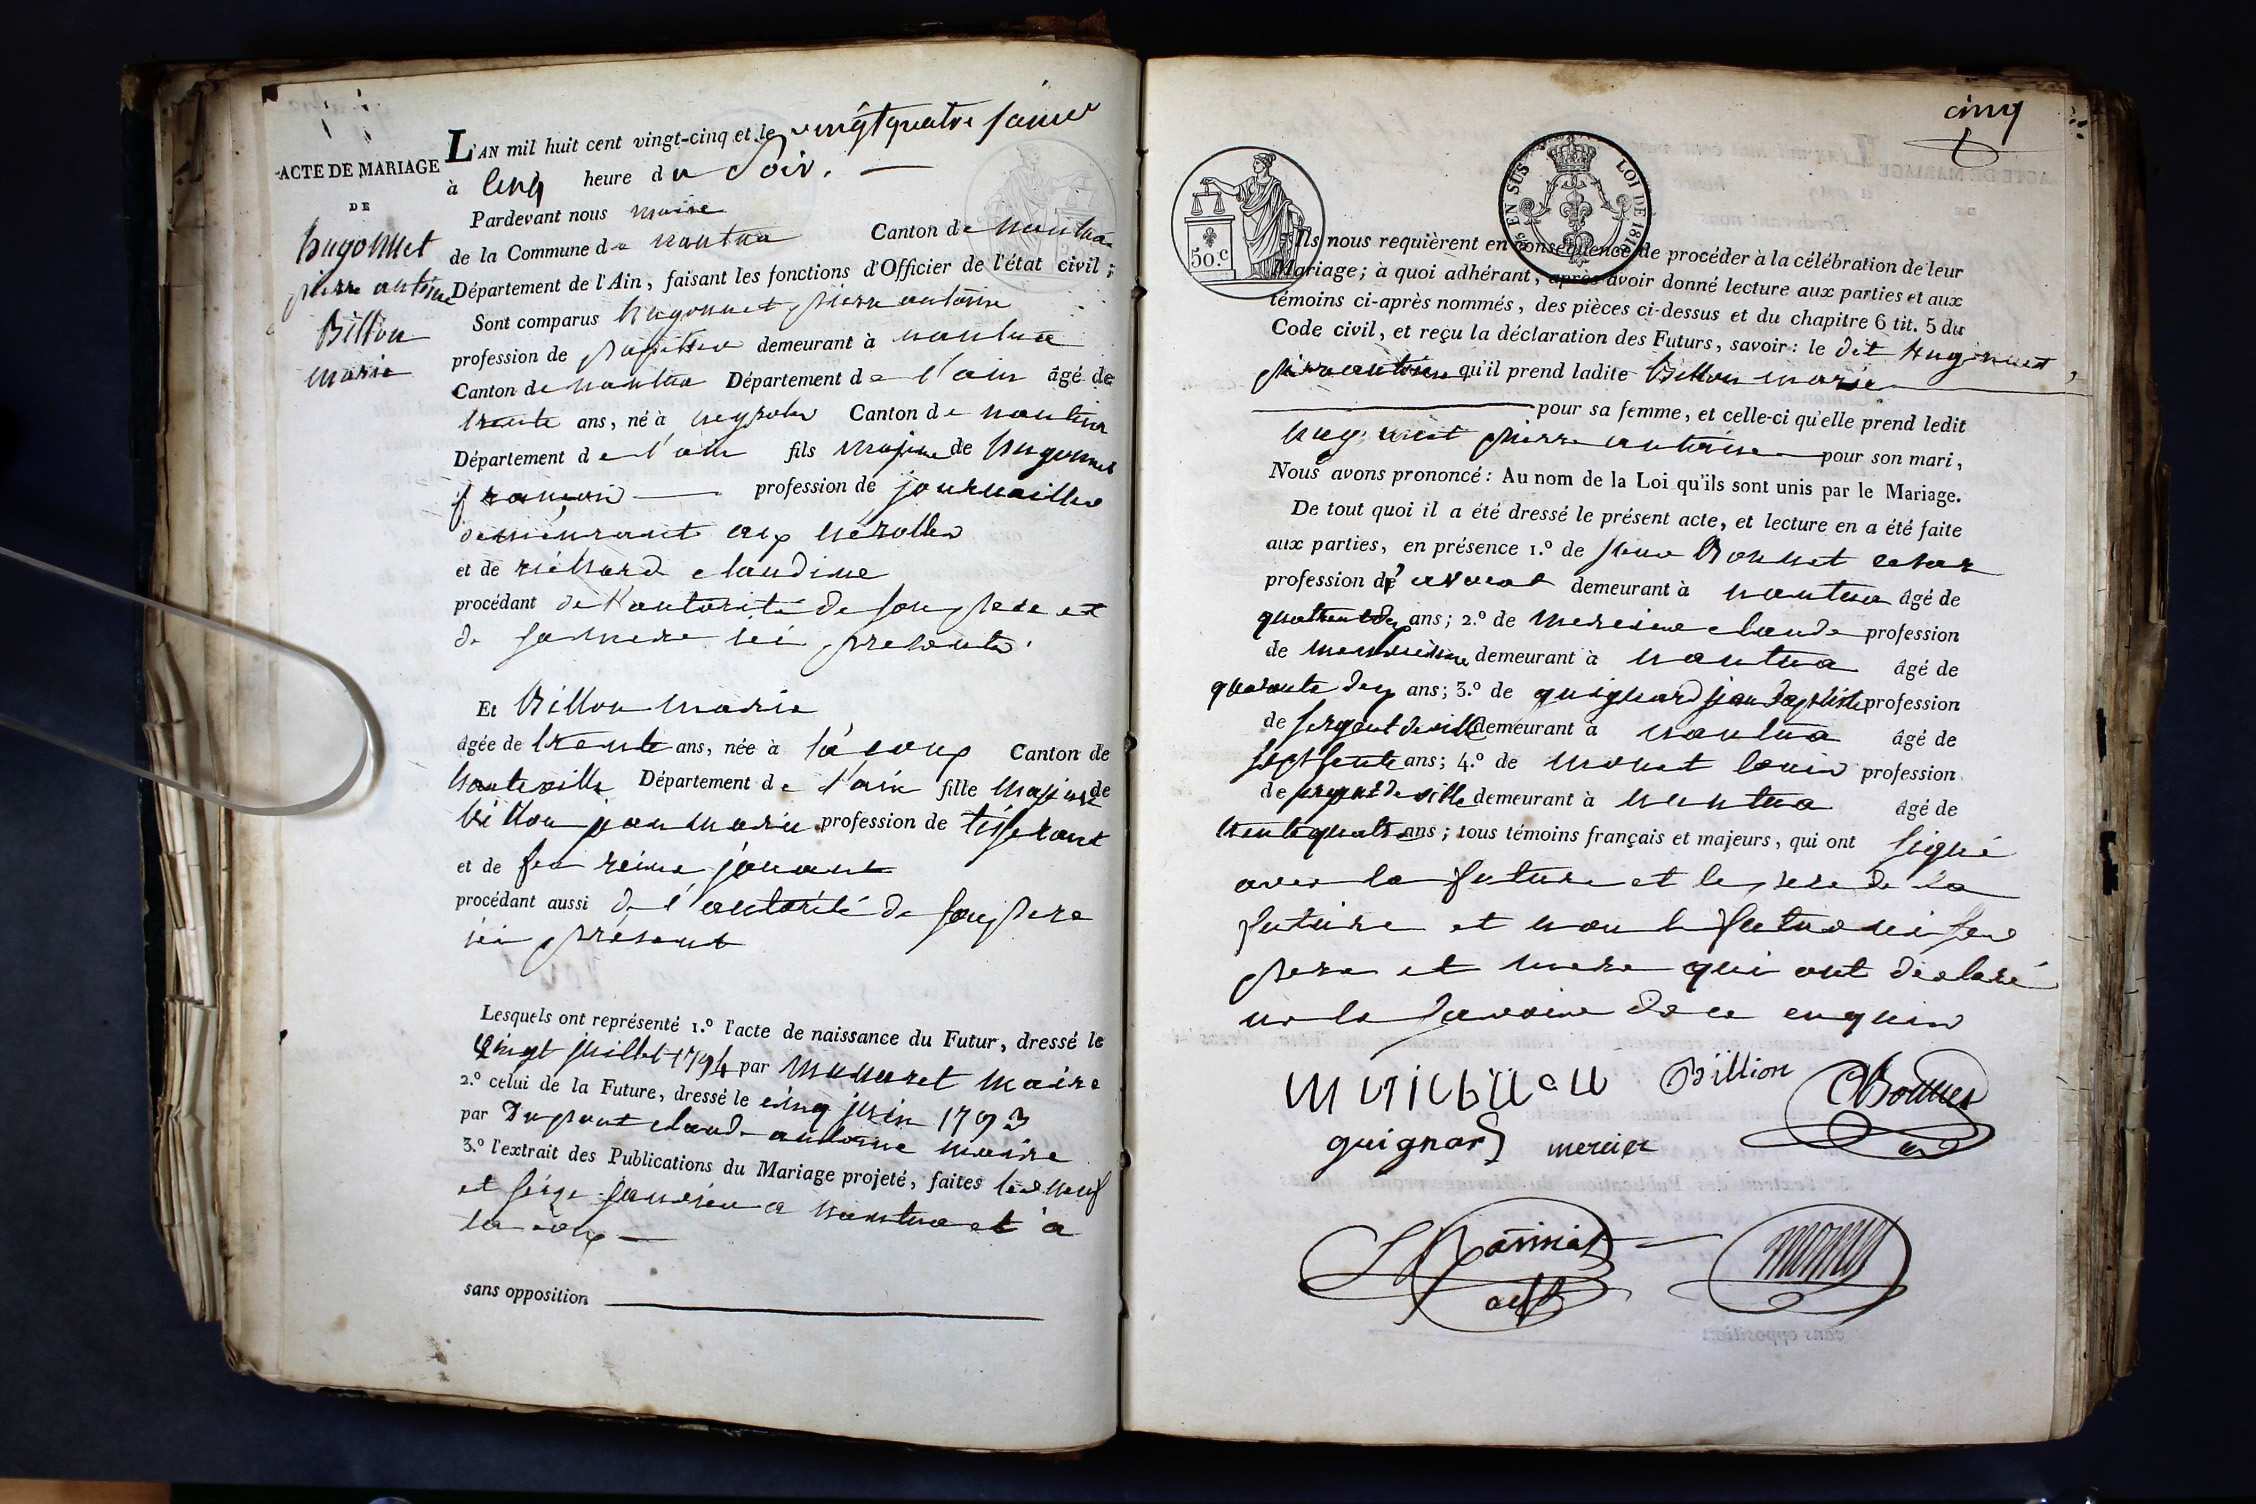 ACTE DE MARIAGE
DE
hugonnet
pierre antoine
Billion
marie
L'AN mil huit cent vingt-cinq et le vingt quatre janvier
à cinq heure du Soir.
Pardevant nous maire
de la Commune de nantua Canton de nantua
Département de l'Ain, faisant les fonctions d'Officier de l'état civil;
Sont comparus hugonnet pierre antoine
profession de demeurant à nantua
Canton de nantua Département de l'ain âgé de
trente ans, né à neyrolles Canton de nantua
Département de l'ain fils majeur de hugonnet
françois profession de journaillier
demeurant aux nerolles
et de richard claudine
procédant de l'autorité de son pere et
de sa mere ici presents.
Et Billion marie
âgée de trente ans, née à lacoux Canton de
hauteville Département de l'ain fille majeure de
billion jean marie profession de tisserant
et de feu reine
procédant aussi de l'autorité de son pere
ici présent
Lesquels ont représenté 1.° l'acte de naissance du Futur, dressé le
vingt juillet 1794 par maire
2.° celui de la Future, dressé le cinq juin 1793
par Dupont claude antoine maire
3.° l'extrait des Publications du Mariage projeté, faites les neuf
et seize janvier a nantua et à
la coux
sans opposition
cinq
5 EN SUS LOI DE 1816
50.c
Ils nous requièrent en conséquence de procéder à la célébration de leur
Mariage; à quoi adhérant, après avoir donné lecture aux parties et aux
témoins ci-après nommés, des pièces ci-dessus et du chapitre 6 tit. 5 du
Code civil, et reçu la déclaration des Futurs, savoir: le dit hugonnet
pierre antoine qu'il prend ladite Billion marie
pour sa femme, et celle-ci qu'elle prend ledit
hugonnet pierre antoine pour son mari,
Nous avons prononcé: Au nom de la Loi qu'ils sont unis par le Mariage.
De tout quoi il a été dressé le présent acte, et lecture en a été faite
aux parties, en présence 1.° de Bonnet cesar
profession d'avocat demeurant à nantua âgé de
ans; 2.° de claude profession
de demeurant à nantua âgé de
quarante deux ans; 3.° de guignard jean baptiste profession
de sergent de ville demeurant à nantua âgé de
ans; 4.° de monet louis profession
de sergent de ville demeurant à nantua âgé de
trente quatre ans; tous témoins français et majeurs, qui ont signé
avec la future et le pere de la
future et non le futur ni ses
pere et mere qui ont déclaré
ne le savoir de ce enquis
Billion CBonnet
guignard mercier
monet